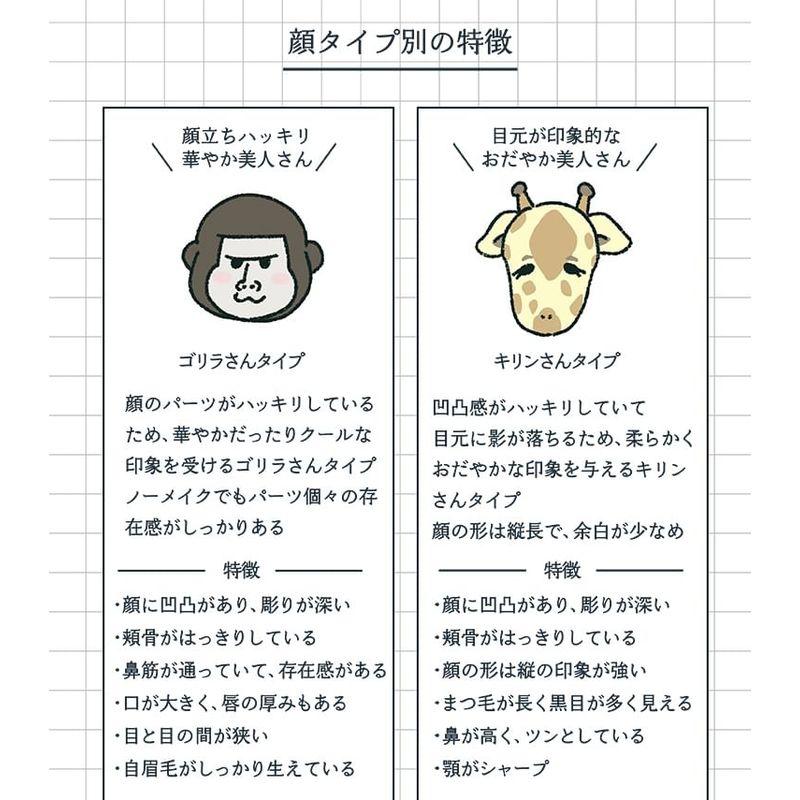 顔タイプ別の特徴
顔立ちハッキリ
華やか美人さん
ゴリラさんタイプ
顔のパーツがハッキリしている
ため、華やかだったりクールな
印象を受けるゴリラさんタイプ
ノーメイクでもパーツ個々の存
在感がしっかりある
特徴
・顔に凹凸があり、彫りが深い
・頬骨がはっきりしている
・鼻筋が通っていて、存在感がある
・口が大きく、唇の厚みもある
・目と目の間が狭い
・自眉毛がしっかり生えている
目元が印象的な
おだやか美人さん
キリンさんタイプ
凹凸感がハッキリしていて
目元に影が落ちるため、柔らかく
おだやかな印象を与えるキリン
さんタイプ
顔の形は縦長で、余白が少なめ
特徴
・顔に凹凸があり、彫りが深い
・頬骨がはっきりしている
・顔の形は縦の印象が強い
・まつ毛が長く黒目が多く見える
・鼻が高く、ツンとしている
・顎がシャープ